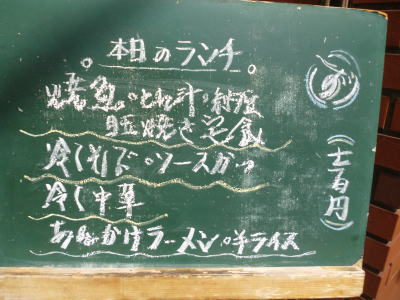 本日のランチ
焼魚・とん汁・納豆
目玉焼き定食
冷しそば・ソースカツ
冷し中華
あんかけラーメン・半ライス
(七百円)